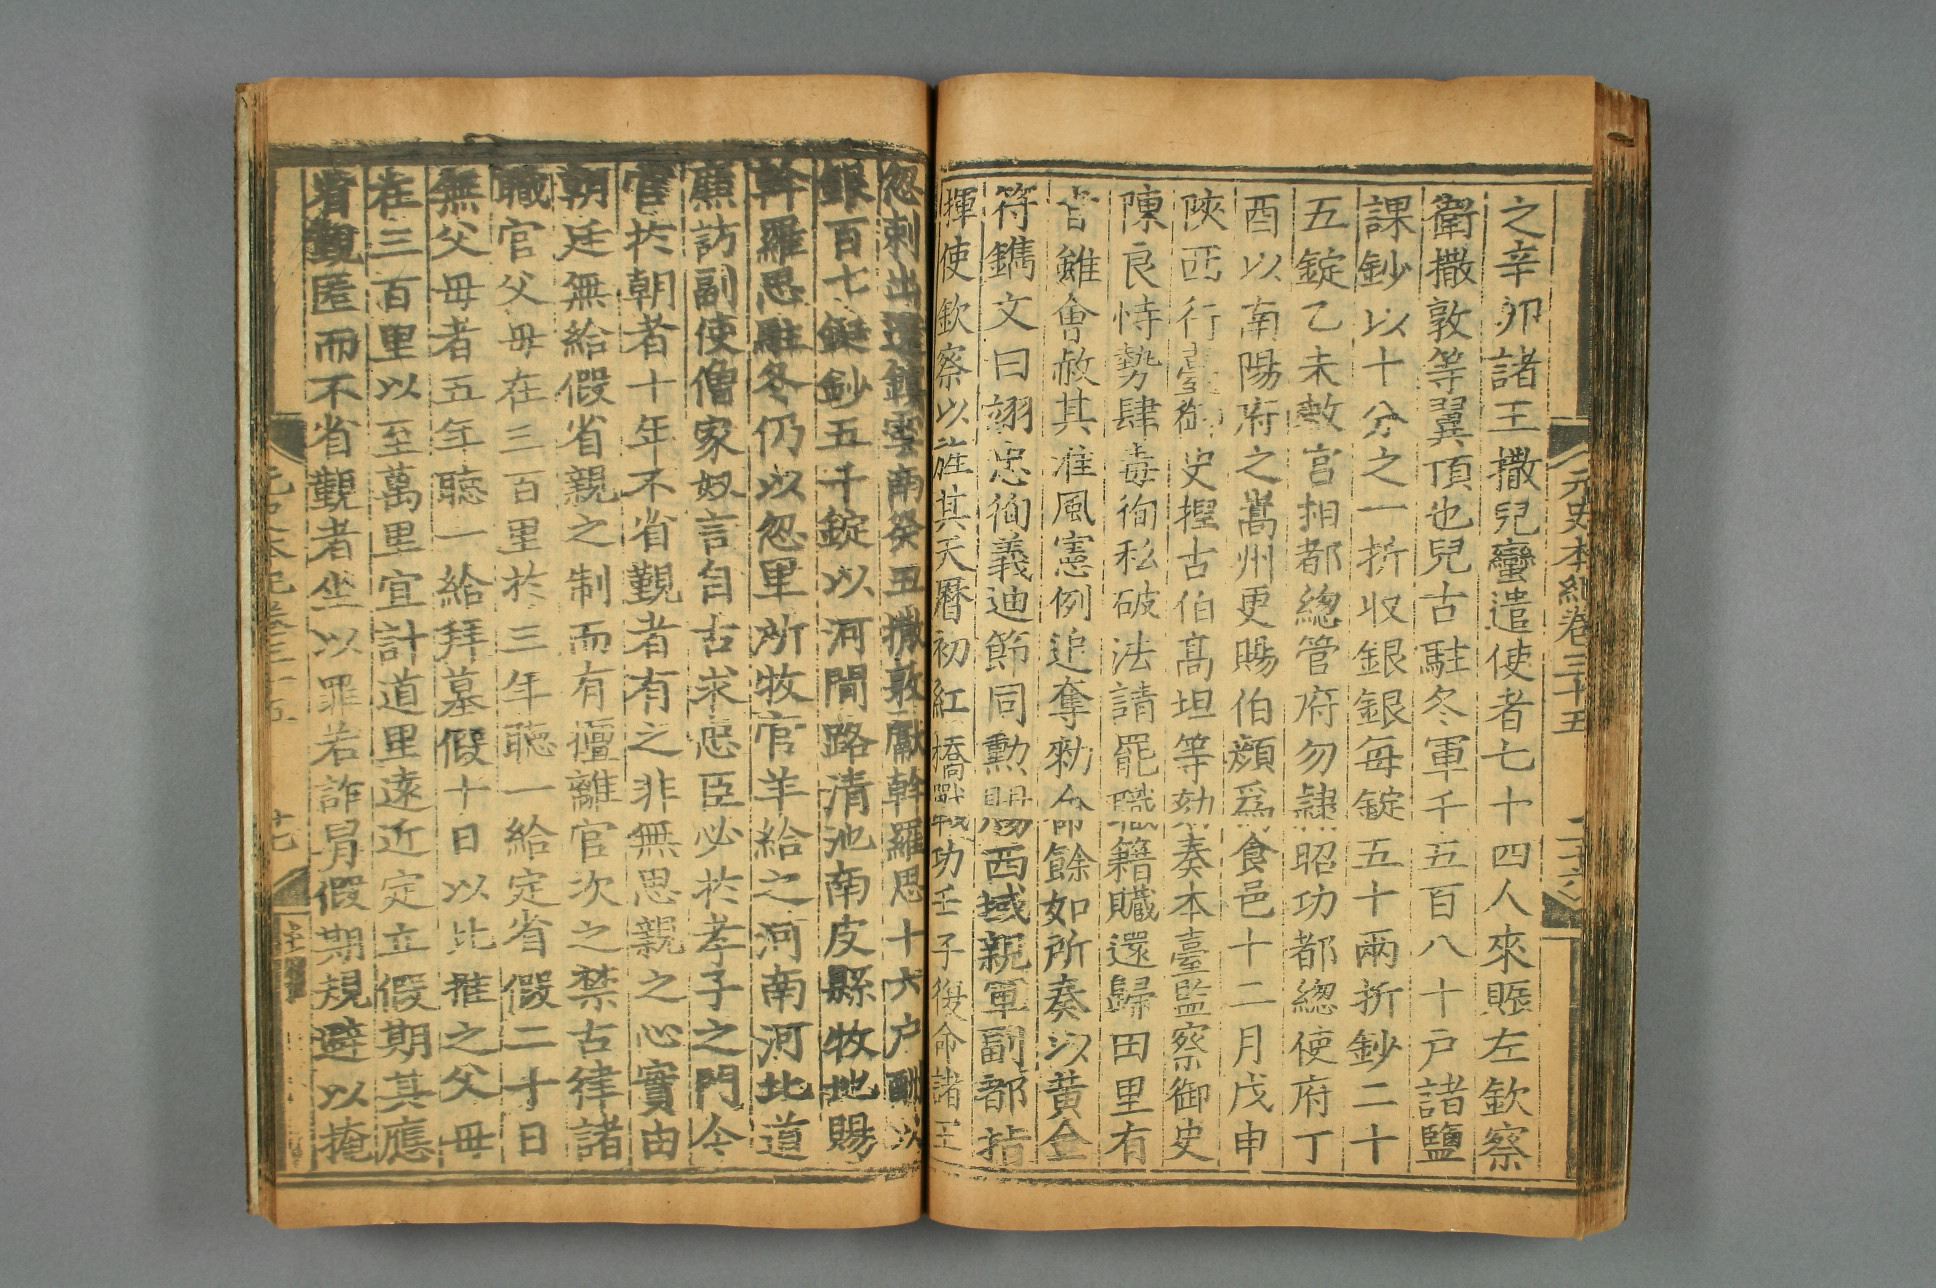 元史本紀卷三十五
二十六
之辛卯諸王撒兒蠻遣使者七十四人來賑左欽察
衛撒敦等翼頂也兒古駐冬軍千五百八十戶諸鹽
課鈔以十分之一折收銀銀每錠五十兩折鈔二十
五錠乙未敕宮相都總管府勿隸昭功都總使府丁
酉以南陽府之嵩州更賜伯顏爲食邑十二月戊申
陝西行臺御史捏古伯高坦等劾奏本臺監察御史
陳良恃勢肆毒徇私破法請罷職籍贓還歸田里有
旨雖會赦其准風憲例追奪勑命餘如所奏以黃金
符鐫文曰翊忠徇義迪節同勳賜西域親軍副都指
揮使欽察以旌其天曆初紅橋戰功壬子復命諸王
忽剌出還鎮雲南癸丑撒敦獻斡羅思十六户酬以
銀百七鋌鈔五千錠以河間路清池南皮縣牧地賜
斡羅思駐冬仍以忽里所牧官羊給之河南河北道
廉訪副使僧家奴言自古求忠臣必於孝子之門今
官於朝者十年不省覲者有之非無思親之心實由
朝廷無給假省親之制而有擅離官次之禁古律諸
職官父母在三百里於三年聽一給定省假二十日
無父母者五年聽一給拜墓假十日以此推之父母
在三百里以至萬里宜計道里遠近定立假期其應
省覲匿而不省覲者坐以罪若詐冒假期規避以掩
元史本紀卷三十五
廿七